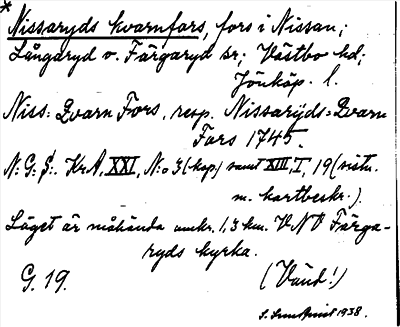 * Nissaryds kvarnfors, fors i Nissan;
Långaryd o. Färgaryd sr; Västbo hd;
Jönköp. l.
Niss: Qvarn Fors, resp. Nissarÿds=Qvarn
Fors 1745.
N:G:S:. KrA, XXI, N:o 3 (kop) samt XIII, I, 19 (sistn.
m. kartbeskr.).
Läget är måhända omkr. 1,3 km. VNV Färga-
ryds kyrka.
G. 19. (Vänd!)
1938.